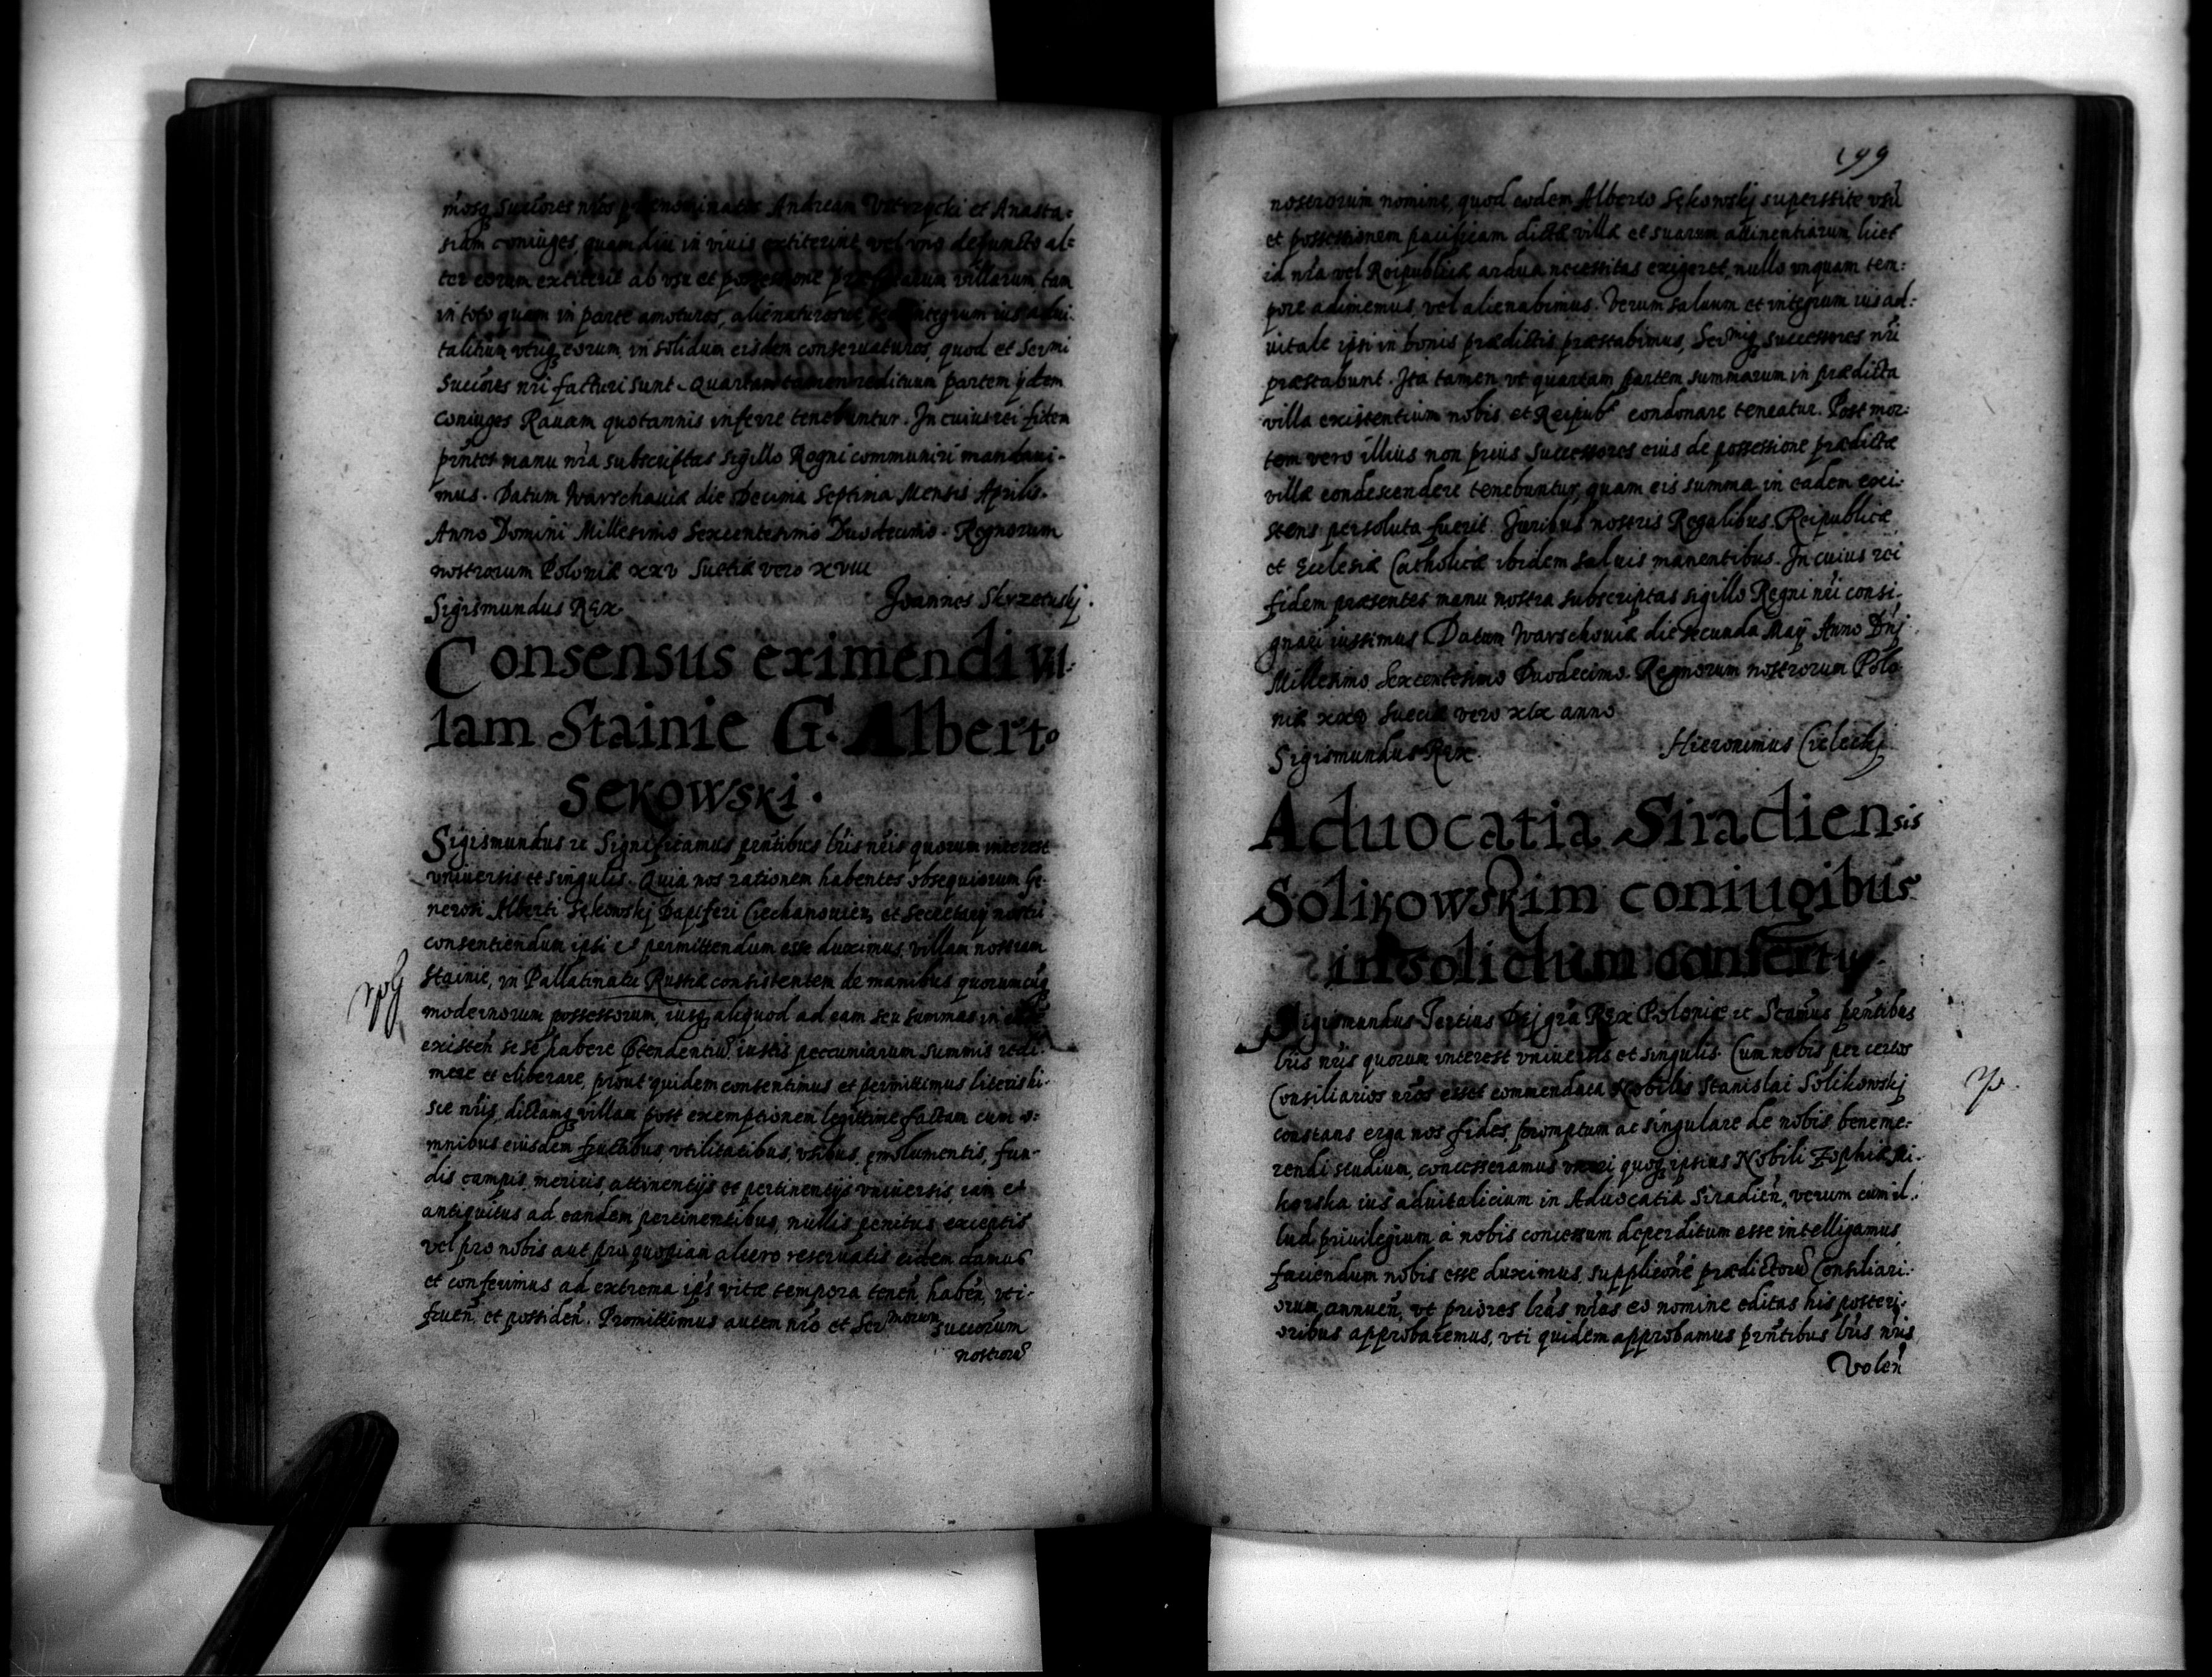 mosq Succores nros prænominatos Andream Vstrzycki et Anasta=
siam coniuges, quamdiu in viuis extiterint, vel vno defuncto al=
ter eorum extiterit ab vsu et possessione præfatarum villarum tam
in toto quam in parte amoturos, alienaturosue, sed integrum ius adui-
talitium vtriq eorum in solidum eisdem conseruaturos, quod et Sermi
Succores nri facturi sunt. Quartam tamen redituum partem ijdem
coniuges Rauam quotannis inferre tenebuntur. In cuius rei fidem
pñtes manu nra subscriptas sigillo Regni communiri mandaui-
mus. Datum Warschauiæ die Decima Septima Mensis Aprilis.
Anno Domini Millesimo Sexcentesimo Duodecimo. Regnorum
nostrorum Poloniæ xxv Suetiæ vero xviii
Sigismundus Rex Joannes Skrzetuskj.
Consensus eximendi vil-
lam Stainie G. Alberto
Sekowski.
Sigismundus rc Significamus pñtibus lris nris quorum interest
vniuersis et singulis. Quia nos rationem habentes obsequiorum Ge-
nerosi Alberti Sękowskj Dapiferi Ciechanouien, et Secretarij nostri
consentiendum ipsi et permittendum esse duximus, villam nostram
Stainie, in Pallatinatu Russiæ consistentem de manibus quorumcuq
modernorum possessorum, iusq aliquod ad eam seu summas in ea
existeñ se se habere prtendentiũ iustis pecuniarum summis redi-
mere et eliberare, prout quidem consentimus et permittimus literis hi-
sce nris, dictamq villam post exemptionem legittime factam cum o-
mnibus eiusdem fructibus, vtilitatibus, vsibus, emolumentis, fun-
dis campis, mericis, attinentijs et pertinentijs vniuersis, iam et
antiquitus ad eandem pertinentibus, nullis penitus exceptis
vel pro nobis aut pro quopiam altero reseruatis eidem damus
et conferimus ad extrema ips vitæ tempora teneñ, habeñ, vti-
frueñ, et possideñ. Promittimus autem nro et Ser morum succorum
nostrorũ
199
nostrorum nomine, quod eodem Alberto Sękowskj superstite vsũ
et possessionem pacificam dictæ villæ et suarum attinentiarum, licet
id nra vel Reipublicæ ardua necessitas exigeret, nullo vnquam tem:
pore adimemus, vel alienabimus. Verum saluum et integrum ius ad:
uitale ipsi in bonis prædictis præstabimus, Ser miq successores nri
præstabunt. Ita tamen vt quartam partem summarum in prædicta
villa existentium nobis et Reipubæ condonare teneatur. Post mor:
tem vero illius non prius successores eius de possessione prædictæ
villæ condescendere tenebuntur, quam eis summa in eadem exi-
stens persoluta fuerit. Juribus nostris Regalibus, Reipublicæ
et Ecclesiæ Catholicæ ibidem saluis manentibus. In cuius rei
fidem præsentes manu nostra subscriptas sigillo Regni nri consi-
gnari iussimus. Datum Warschouiæ die secunda Maij Anno Dnj
Millesimo Sexcentesimo Duodecimo. Regnorum nostrorum Polo
niæ xxv Sueciæ vero xix anno
Sigismundus Rex. Hieronimus Cieleckj
Aduocatia Siradiensis
Solikowskim coniugibus
in solidum confertur
Sigismundus Tertius Dej gra Rex Poloniæ rc Signifmus pñtibus
lris nris quorum interest vniuersis et singulis. Cum nobis per certos
Consiliarios nros esset commendata Nobilis Stanislai Solikowskj
constans erga nos fides, promptum ac singulare de nobis beneme-
rendi studium, concesseramus vxori quoq ipsius Nobili Zophiæ Si-
korska ius aduitalicium in Aduocatia Siradieñ, verum cum il-
lud priuilegium à nobis concessum deperditum esse intelligamus,
faciendum nobis esse duximus, supplicone prædictorũ Consiliari-
orum annueñ, vt priores lras nras eo nomine editas his posteri-
oribus approbaremus, vti quidem approbamus pñtibus lris nris
Voleñ